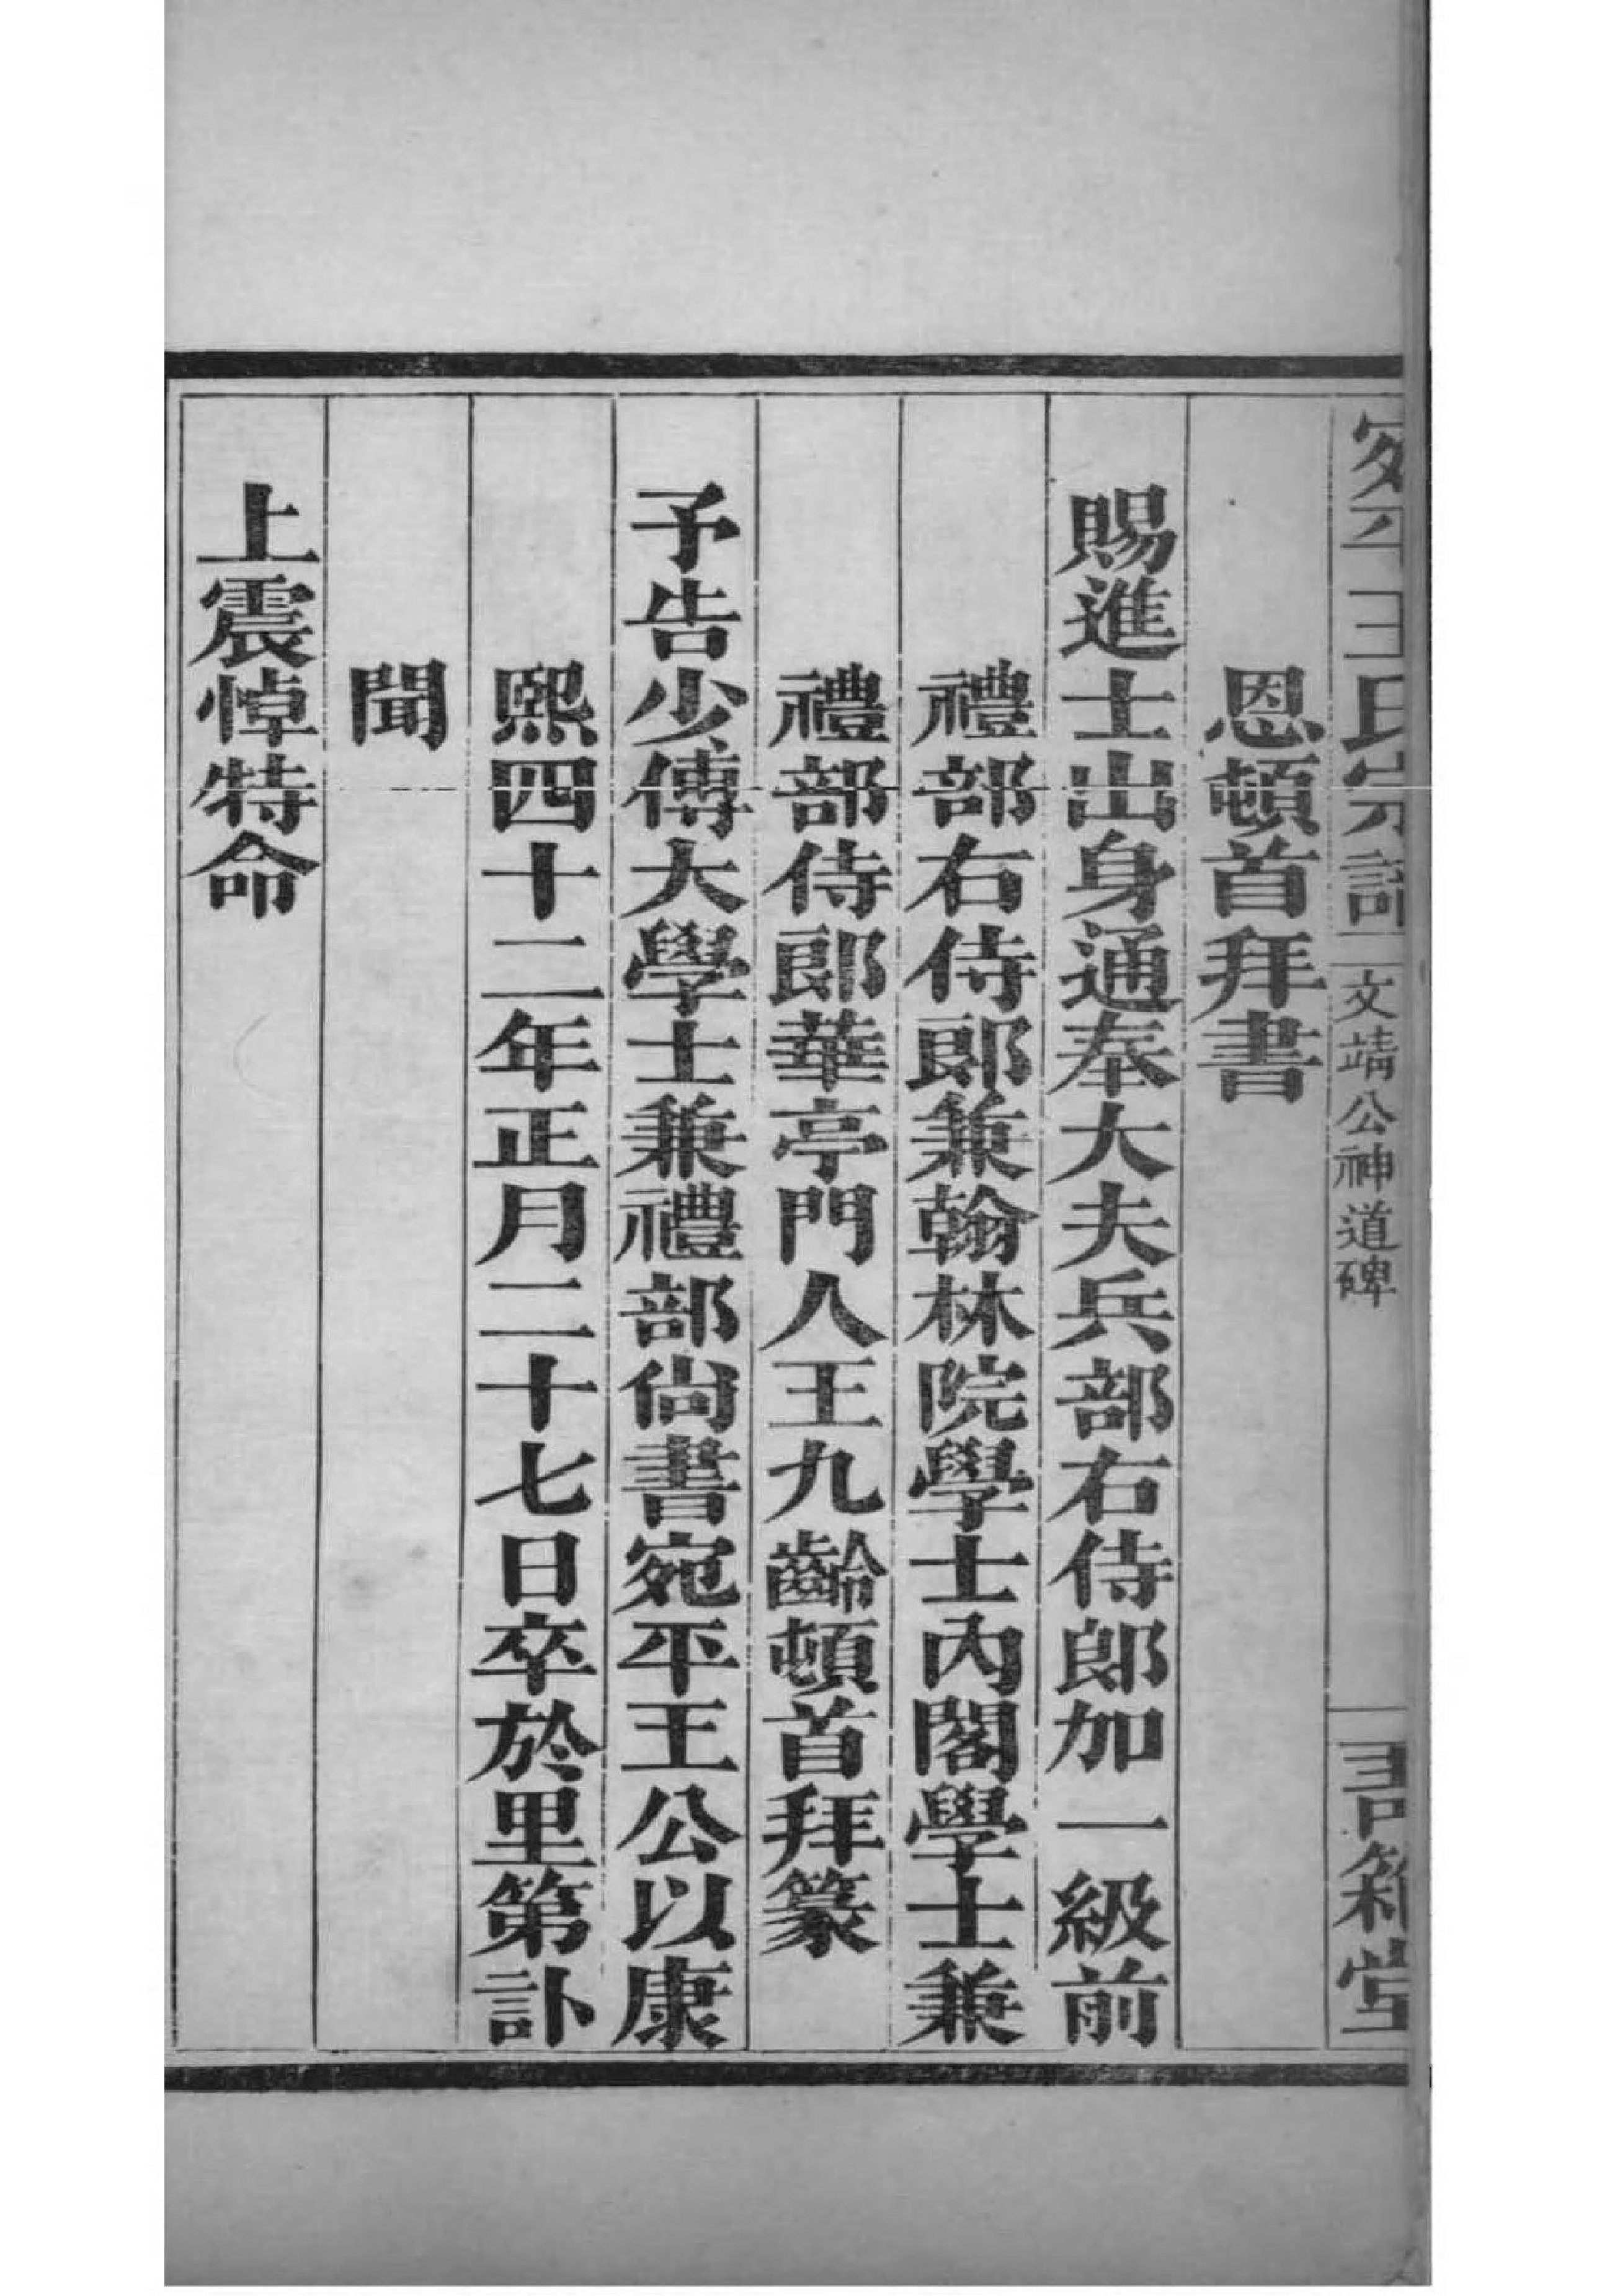 宛平王氏宗譜 文靖公神道碑 青箱堂
恩頓首拜書
賜進士出身通奉大夫兵部右侍郎加一級前
禮部右侍郎兼翰林院學士內閣學士兼
禮部侍郎華亭門人王九齡頓首拜篆
予告少傅大學士兼禮部尙書宛平王公以康
熙四十二年正月二十七日卒於里第訃
聞
上震悼特命